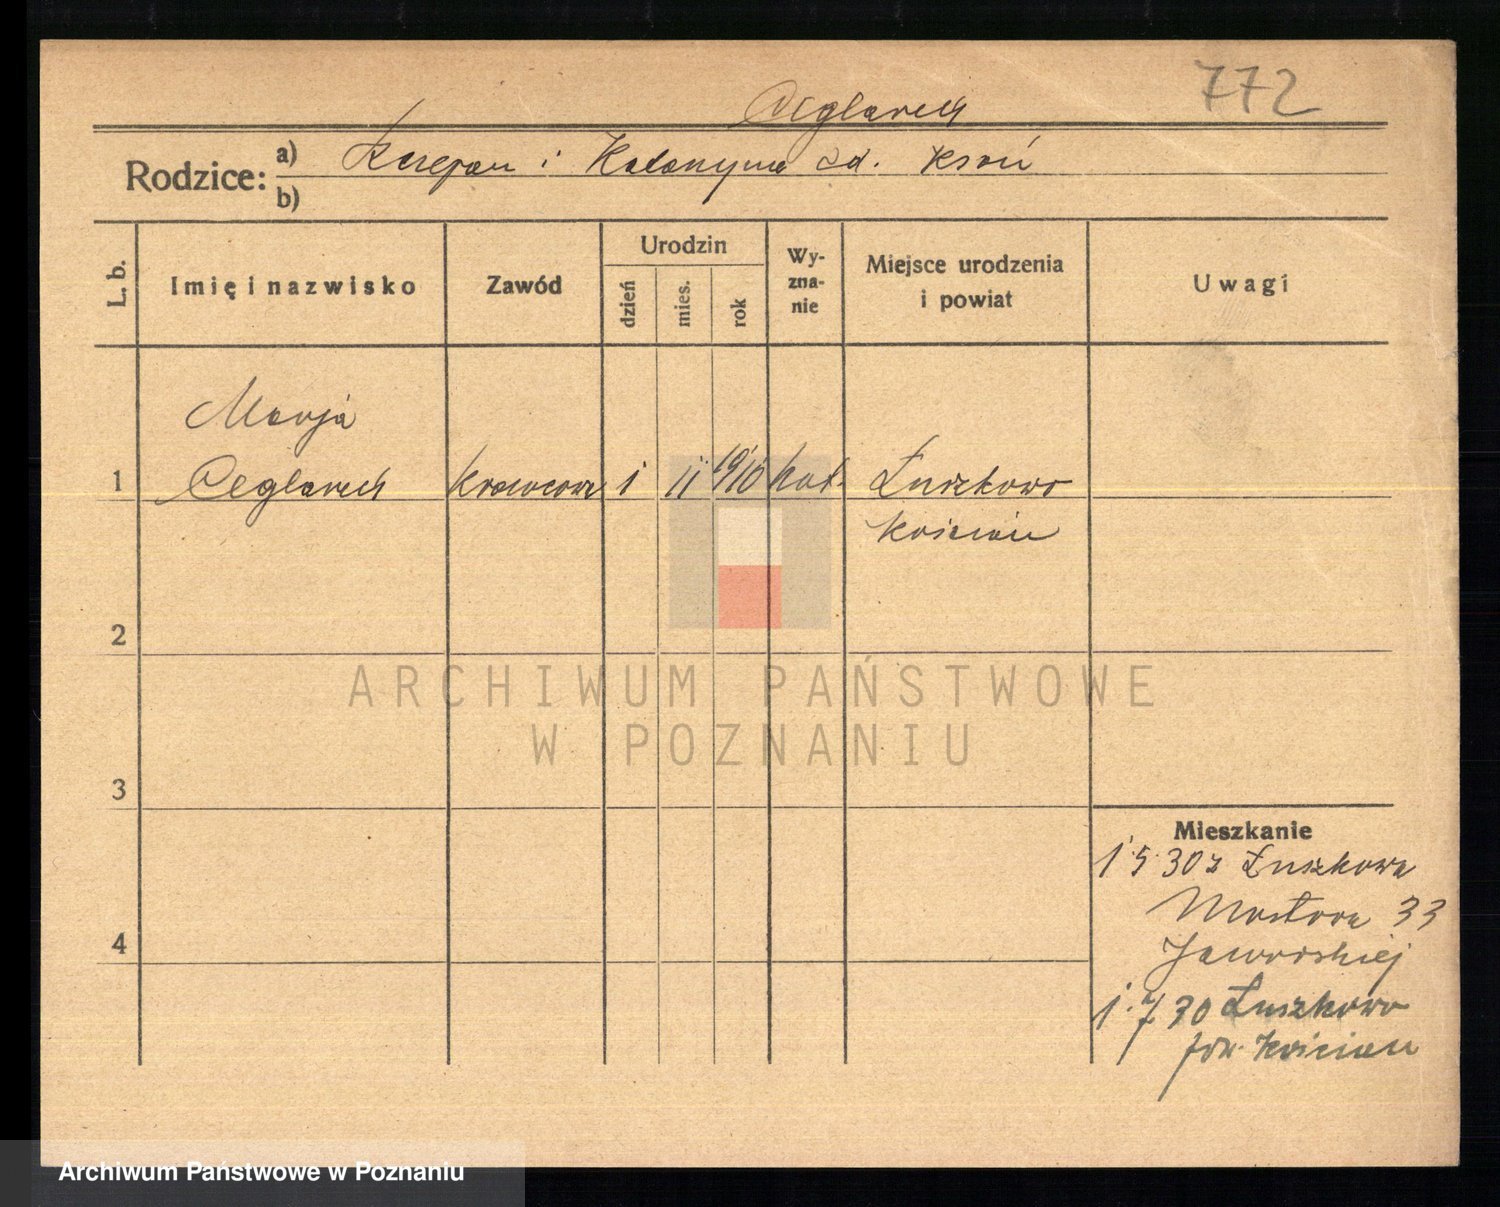 772
Ceglarek
Rodzice: a) Szczepan i Katarzyna zd. Kroń
b)
L. b.
Imię i nazwisko
Zawód
Urodzin
dzień
mies.
rok
Wy-
zna-
nie
Miejsce urodzenia
i powiat
Uwagi
Marja
1 Ceglarek krawcowa 1 11 1910 kat. Łuszkowo
Kościan
2
3
4
Mieszkanie
1 5 30 z Łuszkowa
Mostowa 33
Jaworskiej
1. 7 30 Łuszkowo
pow. Kościan
ARCHIWUM PAŃSTWOWE
W POZNANIU
Archiwum Państwowe w Poznaniu